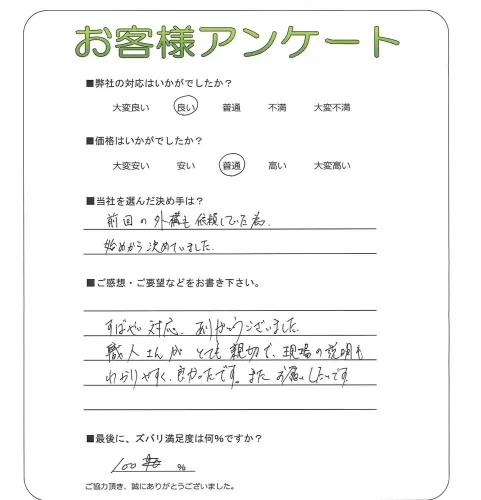 お客様アンケート
■弊社の対応はいかがでしたか？
大変良い 良い 普通 不満 大変不満
■価格はいかがでしたか？
大変安い 安い 普通 高い 大変高い
■当社を選んだ決め手は？
前回の外構も依頼していた為、
始めから決めていました。
■ご感想・ご要望などをお書き下さい。
すばやい対応、ありがとうございました。
職人さんがとても親切で、現場の説明も
わかりやすく、良かったです。またお願いしたいです。
■最後に、ズバリ満足度は何%ですか？
100 %
ご協力頂き、誠にありがとうございました。